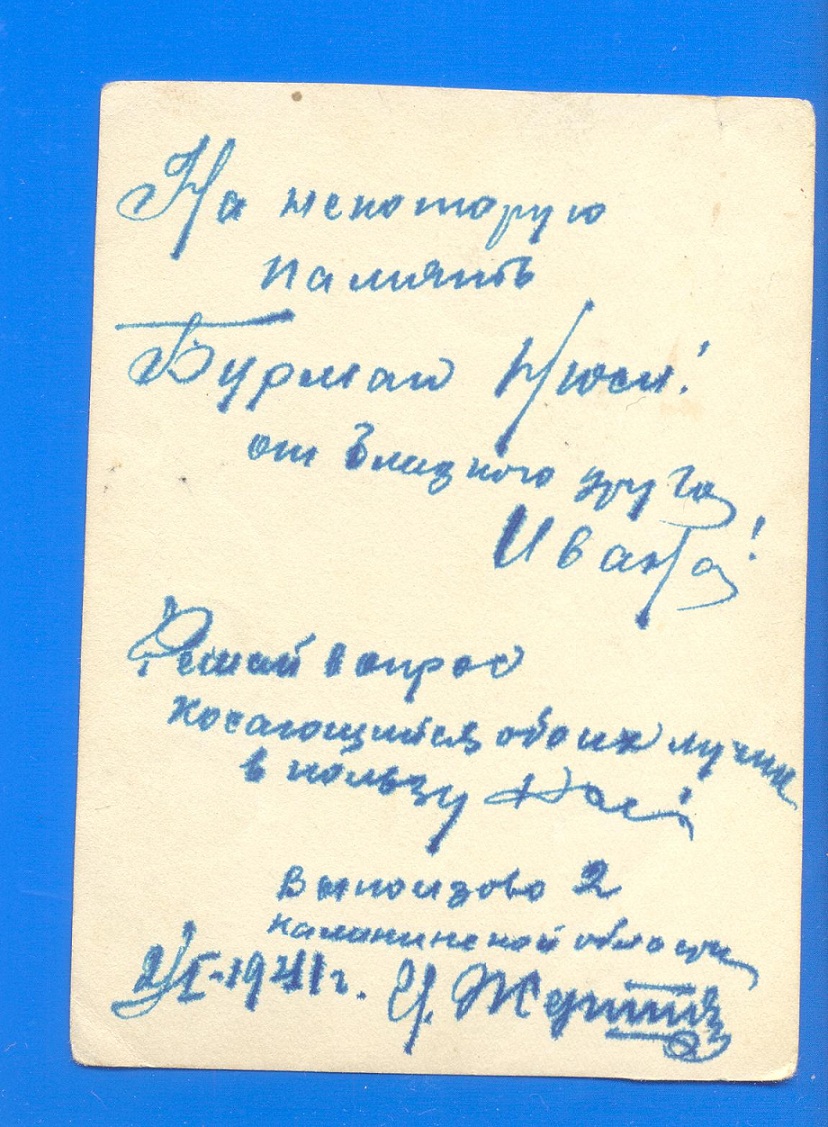 На некоторую
память
Бурман Нюси!
от близкого друга
Ивана!
Решай вопрос
косающийся обоих лучше
в пользу нас!
Выползово 2
калининской области
2/I-1941г. И.